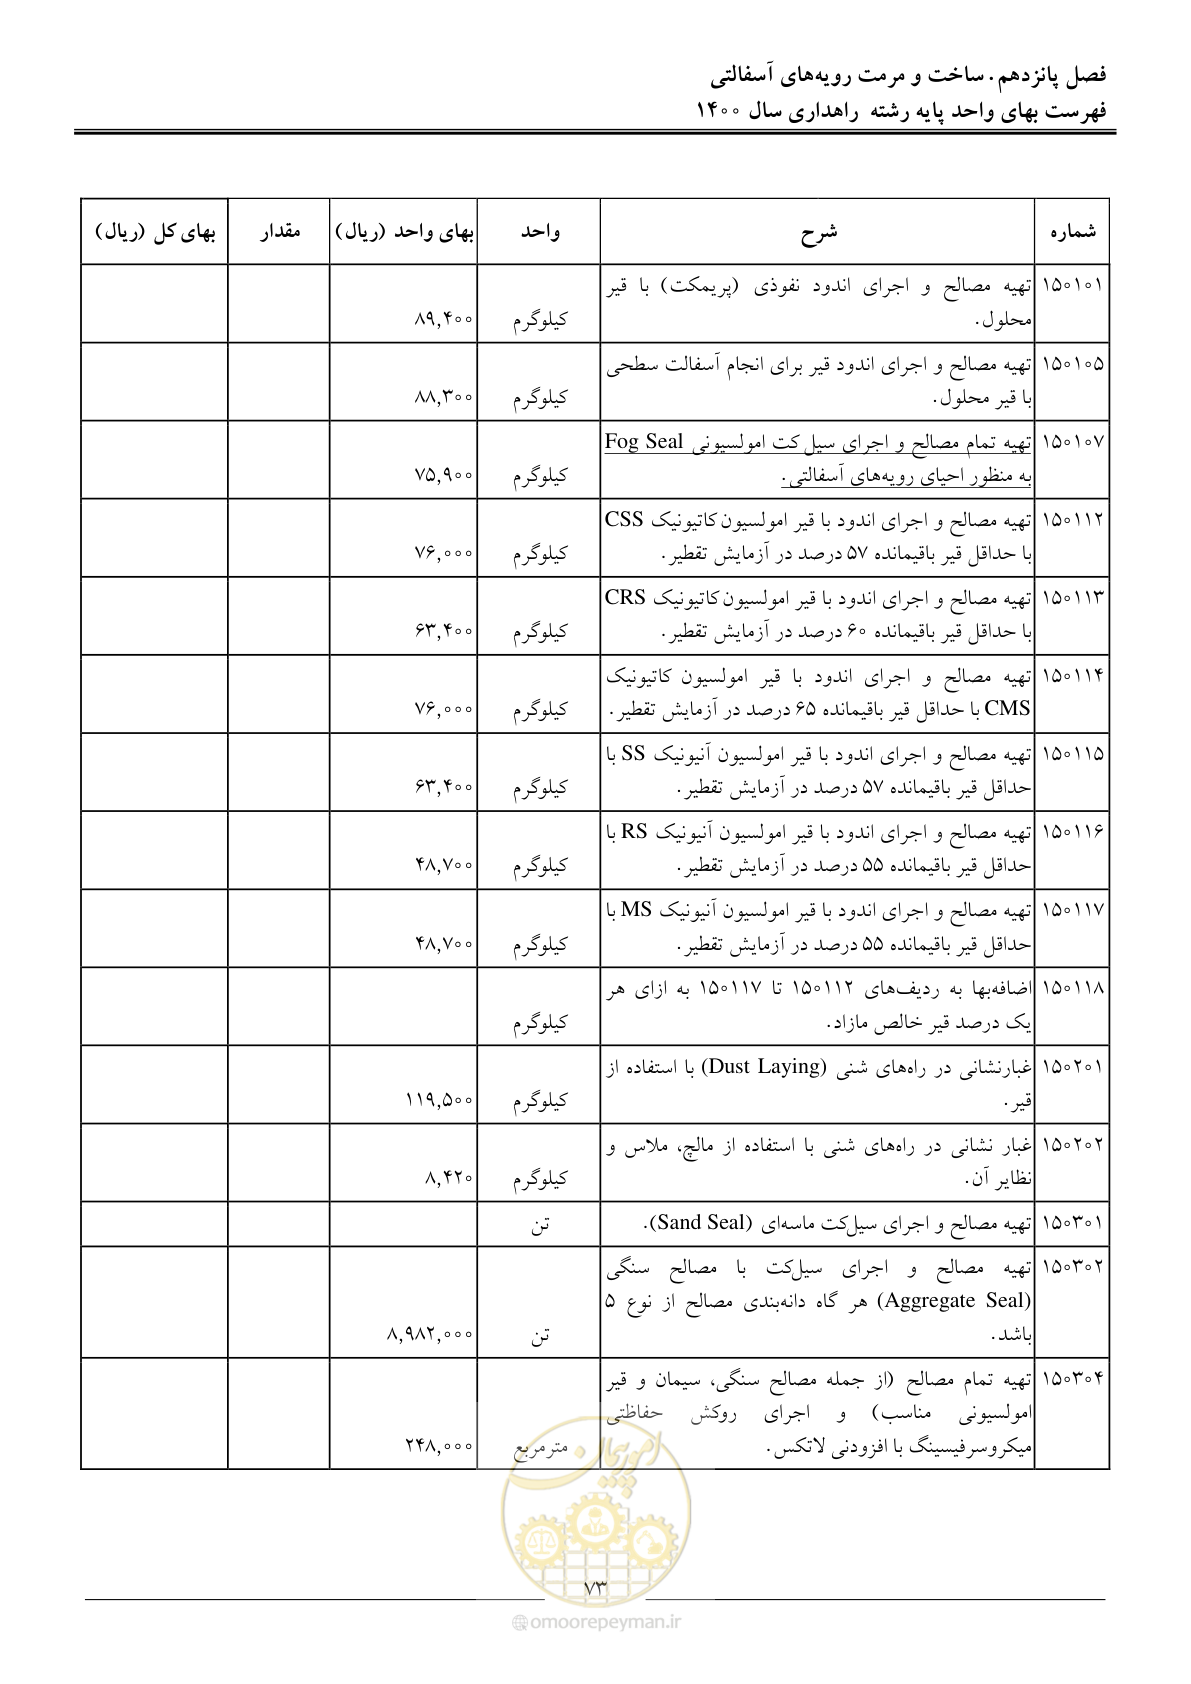 فصل پانزدهم. ساخت و مرمت رویه‌های آسفالتی
فهرست بهای واحد پایه رشته راهداری سال ۱۴۰۰
شماره شرح واحد بهای واحد (ریال) مقدار بهای کل (ریال)
۱۵۰۱۰۱ تهیه مصالح و اجرای اندود نفوذی (پریمکت) با قیر
محلول. کیلوگرم ۸۹,۴۰۰
۱۵۰۱۰۵ تهیه مصالح و اجرای اندود قیر برای انجام آسفالت سطحی
با قیر محلول. کیلوگرم ۸۸,۳۰۰
۱۵۰۱۰۷ تهیه تمام مصالح و اجرای سیل‌کت امولسیونی Fog Seal
به منظور احیای رویه‌های آسفالتی. کیلوگرم ۷۵,۹۰۰
۱۵۰۱۱۲ تهیه مصالح و اجرای اندود با قیر امولسیون کاتیونیک CSS
با حداقل قیر باقیمانده ۵۷ درصد در آزمایش تقطیر. کیلوگرم ۷۶,۰۰۰
۱۵۰۱۱۳ تهیه مصالح و اجرای اندود با قیر امولسیون کاتیونیک CRS
با حداقل قیر باقیمانده ۶۰ درصد در آزمایش تقطیر. کیلوگرم ۶۳,۴۰۰
۱۵۰۱۱۴ تهیه مصالح و اجرای اندود با قیر امولسیون کاتیونیک
CMS با حداقل قیر باقیمانده ۶۵ درصد در آزمایش تقطیر. کیلوگرم ۷۶,۰۰۰
۱۵۰۱۱۵ تهیه مصالح و اجرای اندود با قیر امولسیون آنیونیک SS با
حداقل قیر باقیمانده ۵۷ درصد در آزمایش تقطیر. کیلوگرم ۶۳,۴۰۰
۱۵۰۱۱۶ تهیه مصالح و اجرای اندود با قیر امولسیون آنیونیک RS با
حداقل قیر باقیمانده ۵۵ درصد در آزمایش تقطیر. کیلوگرم ۴۸,۷۰۰
۱۵۰۱۱۷ تهیه مصالح و اجرای اندود با قیر امولسیون آنیونیک MS با
حداقل قیر باقیمانده ۵۵ درصد در آزمایش تقطیر. کیلوگرم ۴۸,۷۰۰
۱۵۰۱۱۸ اضافه‌بها به ردیف‌های ۱۵۰۱۱۲ تا ۱۵۰۱۱۷ به ازای هر
یک درصد قیر خالص مازاد. کیلوگرم
۱۵۰۲۰۱ غبارنشانی در راه‌های شنی (Dust Laying) با استفاده از
قیر. کیلوگرم ۱۱۹,۵۰۰
۱۵۰۲۰۲ غبار نشانی در راه‌های شنی با استفاده از مالچ، ملاس و
نظایر آن. کیلوگرم ۸,۴۲۰
۱۵۰۳۰۱ تهیه مصالح و اجرای سیل‌کت ماسه‌ای (Sand Seal). تن
۱۵۰۳۰۲ تهیه مصالح و اجرای سیل‌کت با مصالح سنگی
(Aggregate Seal) هر گاه دانه‌بندی مصالح از نوع ۵
باشد. تن ۸,۹۸۲,۰۰۰
۱۵۰۳۰۴ تهیه تمام مصالح (از جمله مصالح سنگی، سیمان و قیر
امولسیونی مناسب) و اجرای روکش حفاظتی
میکروسرفیسینگ با افزودنی لاتکس. مترمربع ۲۴۸,۰۰۰
امور پیمان
۷۳
omoorepeyman.ir